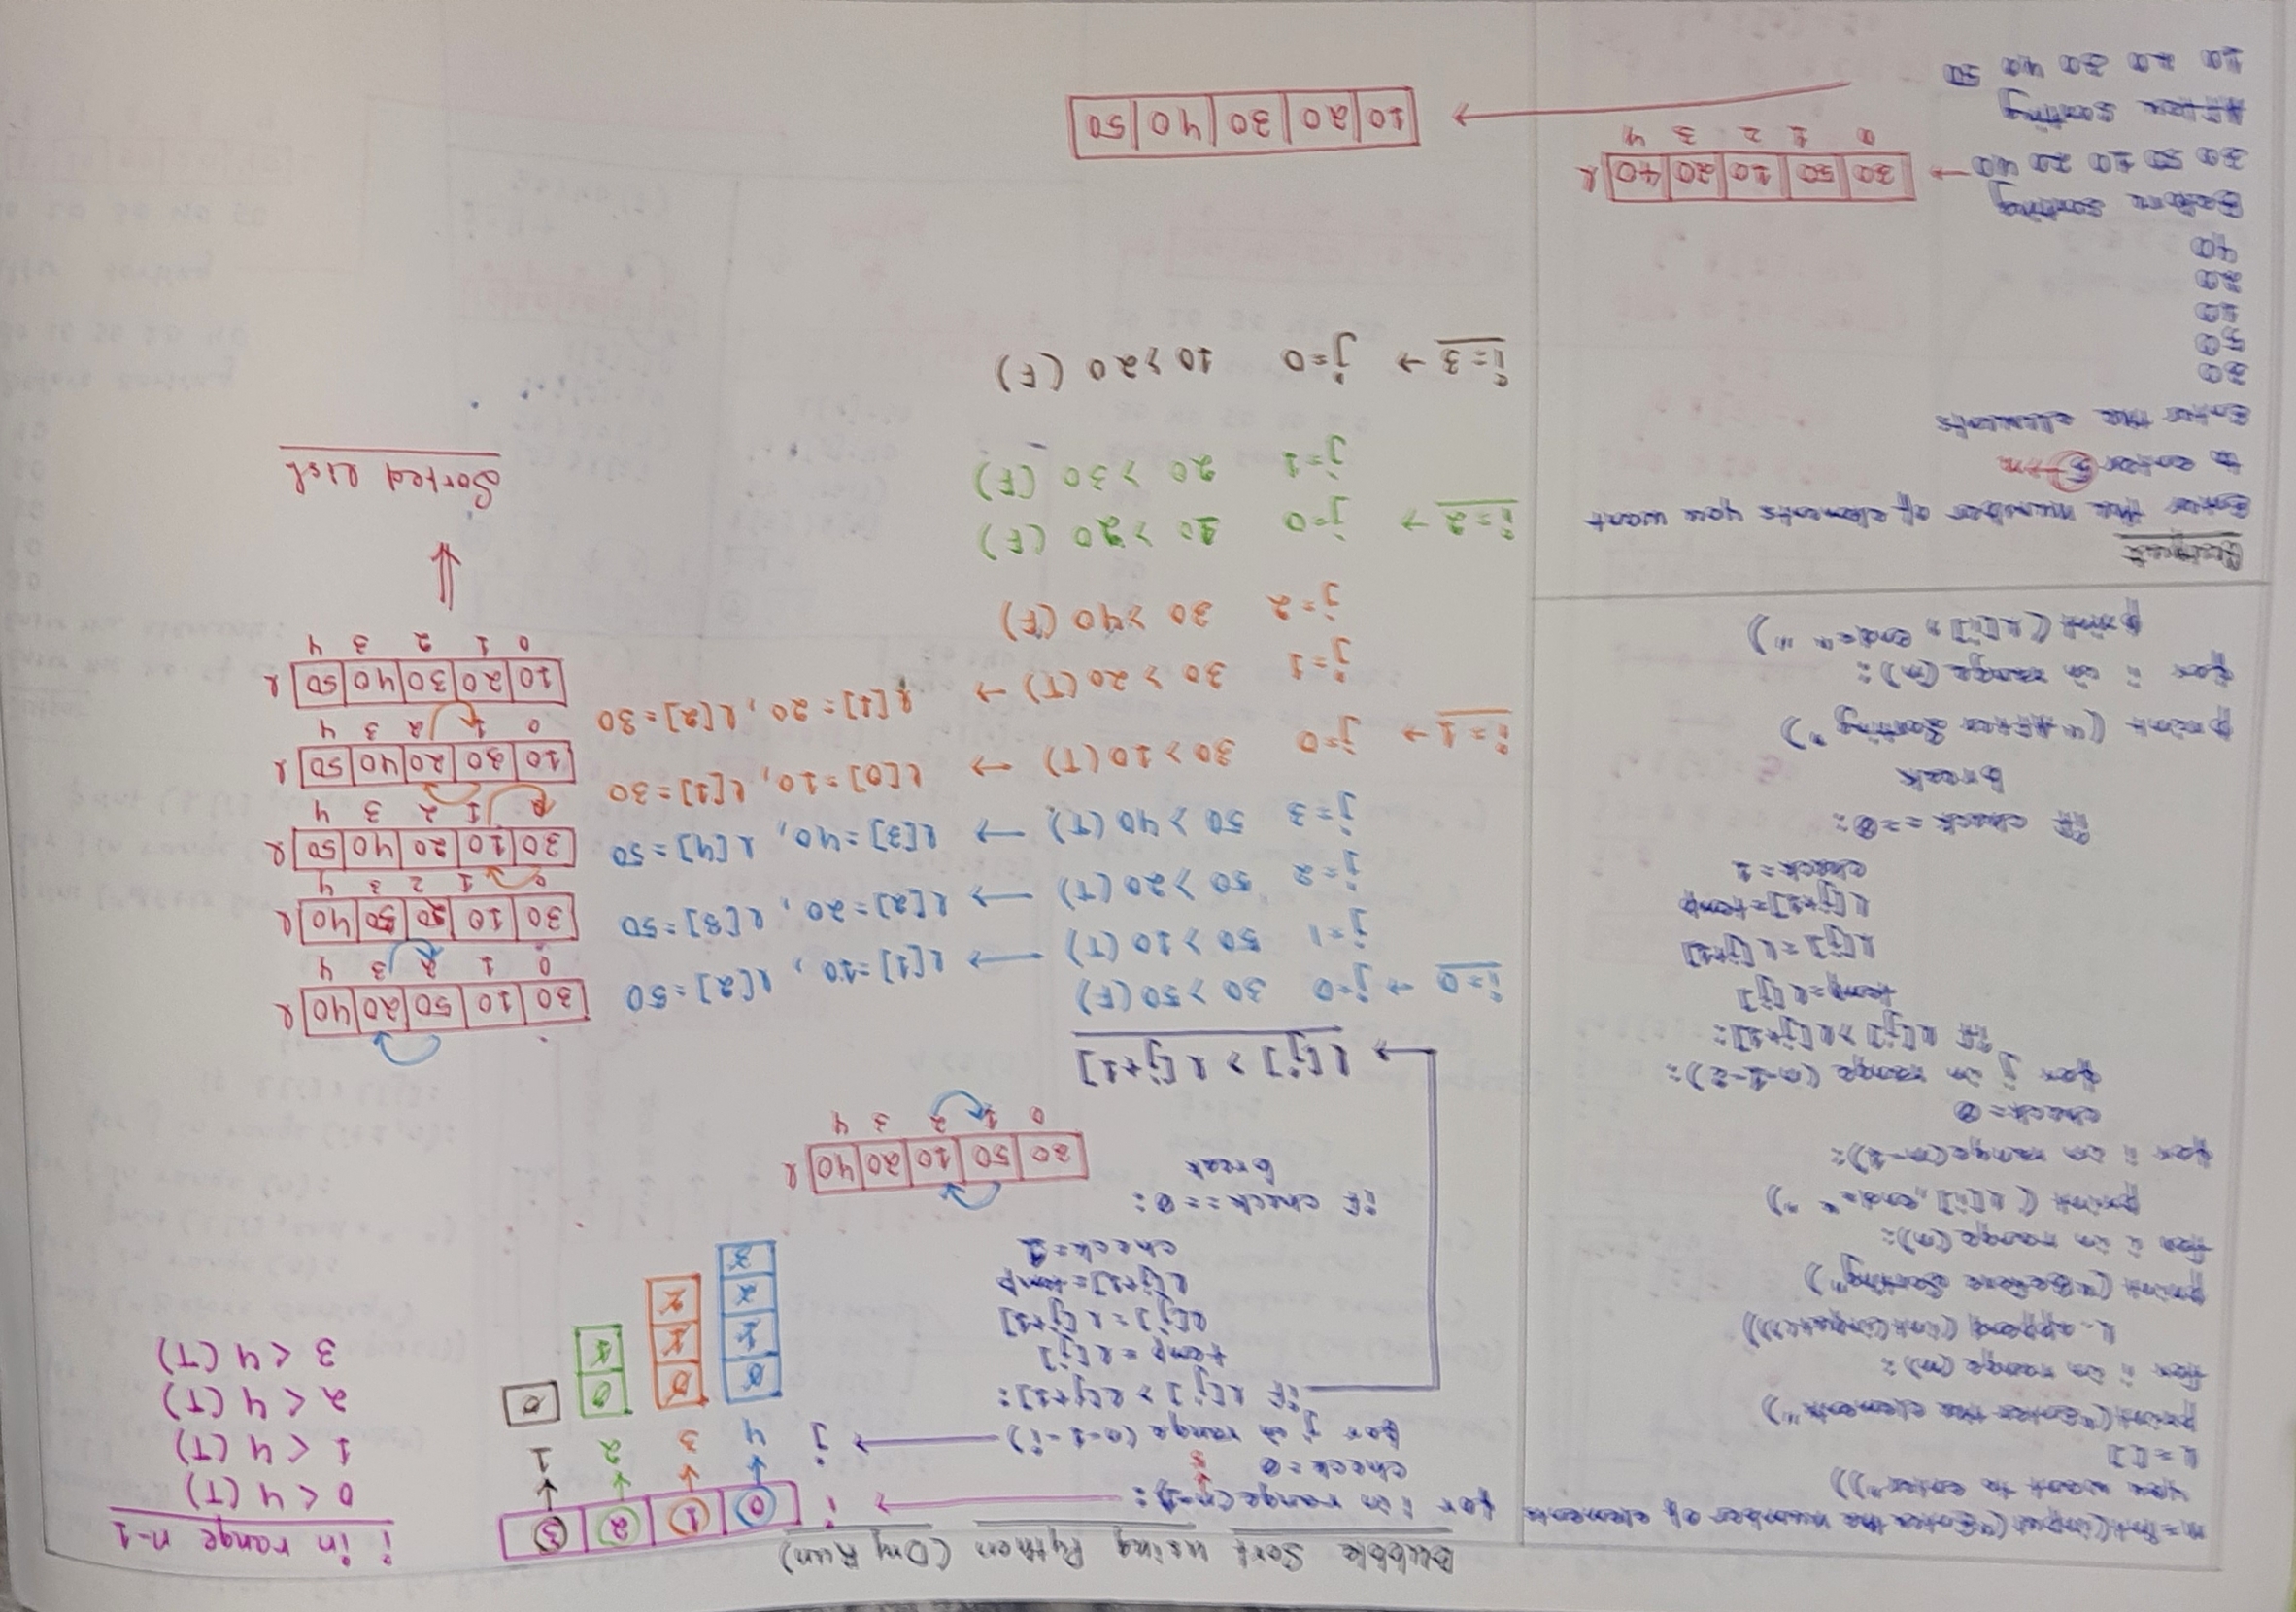 Bubble Sort using Python (Dry Run)
n=int(input("Enter the number of elements
you want to enter"))
l=[]
print("Enter the elements")
for i in range(n):
l.append(int(input()))
print("Before Sorting")
for i in range(n):
print(l[i],end=" ")
for i in range(n-1):
check=0
for j in range(n-1-i):
if l[j]>l[j+1]:
temp=l[j]
l[j]=l[j+1]
l[j+1]=temp
check=1
if check==0:
break
print("After Sorting")
for i in range(n):
print(l[i], end=" ")
Output
Enter the number of elements you want
to enter 5→n
Enter the elements
30
50
10
20
40
Before sorting
30 50 10 20 40 → 30 50 10 20 40 l
0 1 2 3 4
After sorting
10 20 30 40 50 → 10 20 30 40 50
for i in range(n-1): → i 0 1 2 3
5
check=0
for j in range(n-1-i) → j 4 3 2 1
if l[j] > l[j+1]:
temp=l[j]
l[j]=l[j+1]
l[j+1]=temp
check=1
if check==0:
break
0 0 0 0
1 1 1
2 2
3
i in range n-1
0 < 4 (T)
1 < 4 (T)
2 < 4 (T)
3 < 4 (T)
30 50 10 20 40 l
0 1 2 3 4
l[j] > l[j+1]
i=0 → j=0 30 > 50 (F)
j=1 50 > 10 (T) → l[1]=10, l[2]=50
30 10 50 20 40 l
0 1 2 3 4
j=2 50 > 20 (T) → l[2]=20, l[3]=50
30 10 20 50 40 l
0 1 2 3 4
j=3 50 > 40 (T) → l[3]=40, l[4]=50
30 10 20 40 50 l
0 1 2 3 4
i=1 → j=0 30 > 10 (T) → l[0]=10, l[1]=30
10 30 20 40 50 l
0 1 2 3 4
j=1 30 > 20 (T) → l[1]=20, l[2]=30
10 20 30 40 50 l
0 1 2 3 4
j=2 30 > 40 (F)
i=2 → j=0 10 > 20 (F)
j=1 20 > 30 (F)
i=3 → j=0 10 > 20 (F)
⇓
Sorted list